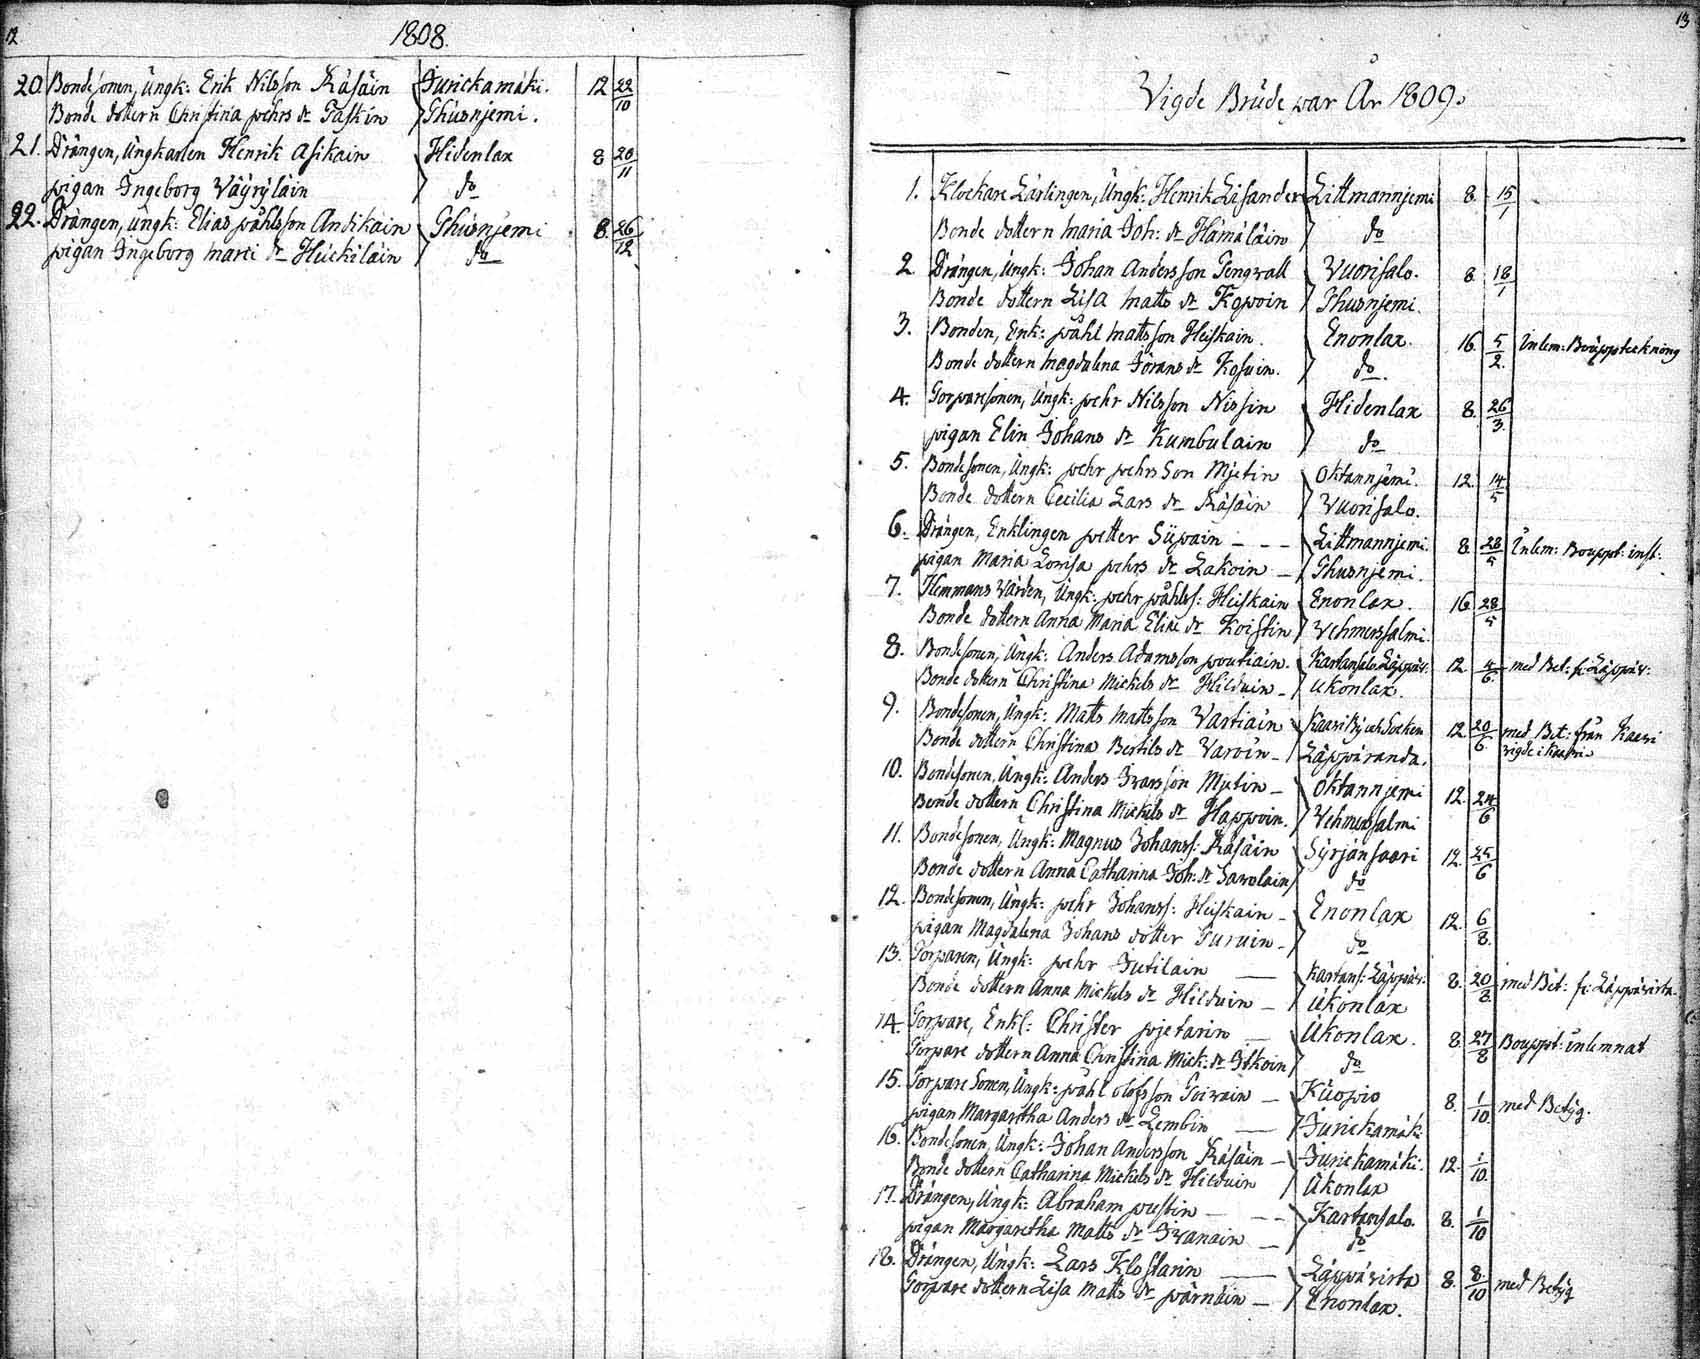 12
1808.
20. Bondesonen, Ungk: Erik Nilsson Räsäin Jurickamäki. 12 22/10
Bonde dottern Christina pehrs dr Taskin Thusnjemi.
21. Drängen, Ungkarlen Henrik Asikain Hidenlax 8 20/11
pigan Ingeborg Väyryläin do
22. Drängen, ungk: Elias påhlsson Andikain Thusnjemi 8. 26/12
pigan Ingeborg marti dr Huckiläin do
13
Vigde Brude par År 1809.
1. Klockare Lärlingen, Ungk: Henrik Lisander Littmannjemi 8. 15/1
Bonde dottern maria Joh: dr Hämäläin do
2 Drängen, Ungk: Johan Andersson Tengwall Vuorisalo. 8 18/1
Bonde dottern Lisa matts dr Kopoin Thusnjemi.
3. Bonden, Enk: påhl mattsson Heiskain. Enonlax. 16. 5/2. Inlem: Bouppteckning
Bonde dottern magdalena Jörans dr Kosuin. do.
4. Torparesonen, Ungk: pehr Nilsson Nissin Hidenlax 8. 26/3.
pigan Elin Johans dr Kumbulain do
5. Bondesonen, Ungk: pehr pehrsson Mjetin Oktannjemi. 12. 14/5
Bonde dottern Cecilia Lars dr Räsäin Vuorisalo.
6. Drängen, Enklingen petter Siipain - - - Littmannjemi. 8. 28/5 Inlem: Bouppt: inst:
pigan Maria Lovisa pehrs dr Lakoin - Thusnjemi.
7. Hemmans Värden, Ungk: pehr påhlss: Heiskain Enonlax. 16 28/5
Bonde dottern Anna Maria Eliae dr Koistin Vehmersalmi.
8. Bondesonen, Ungk: Anders Adamsson poutiain. Kartansalo Läppäv: 12. 4/6. med Bet: fr: Läppäv:
Bonde dottern Christina Mickels dr Hilduin - Ukonlax.
9. Bondesonen, Ungk: Matts mattsson Vartiain Kaavi By och Socken 12. 20/6. med Bet: från Kaavi
vigde i Kaavi
Bonde dottern Christina Bertils dr Varoin - Läppäranda.
10. Bondesonen, Ungk: Anders Ivarsson Mjetin - Oktannjemi 12. 24/6
Bonde dottern Christina Mickels dr Happoin. Vehmersalmi
11. Bondesonen, Ungk: Magnus Johanss: Räsäin Syrjänsaari 12. 25/6
Bonde dottern Anna Catharina Joh: dr Savolain do
12. Bondesonen, Ungk: pehr Johanss: Heiskain - Enonlax 12. 6/8.
pigan Magdalena Johans dotter Turuin - do
13. Torparen, Ungk: pehr Jutilain — Kartans: Läppäv: 8. 20/8. med Bet: fr: Läppävirta.
Bonde dottern Anna Mickels dr Hilduin - Ukonlax
14. Torpare, Enkl: Christer pjetarin — Ukonlax. 8. 27/8 Bouppt: inlemnat
Torpare dottern Anna Christina Mick: dr Itkoin do
15. Torpare Sonen, Ungk: påhl olofsson Toivain - Kuopio 8. 1/10. med Betyg.
pigan Margaretha Anders dr Lembin — Jurickamäki
16. Bondesonen, Ungk: Johan Andersson Räsäin - Jurickamäki. 12. 1/10.
Bonde dottern Catharina Mickels dr Hilduin Ukonlax
17. Drängen, Ungk: Abraham pustin - - - Kartansalo. 8. 1/10
pigan Margaretha Matts dr Ivanain - do
18. Drängen, Ungk: Lars Klostarin — Läppävirta 8. 8./10 med Betyg
Torpare dottern Lisa Matts dr pärnäin - Enonlax.